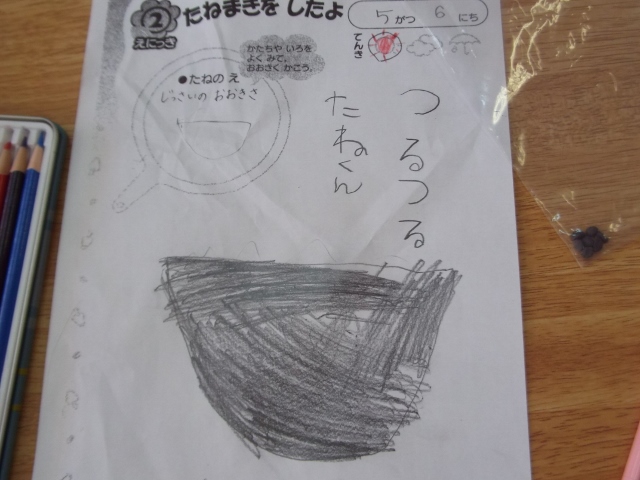 2
えにっき
たねまきを したよ
5がつ 6にち
てんき
かたちや いろを
よく みて、
おおきく かこう。
●たねの え
じっさいの おおきさ
つるつる
たねくん